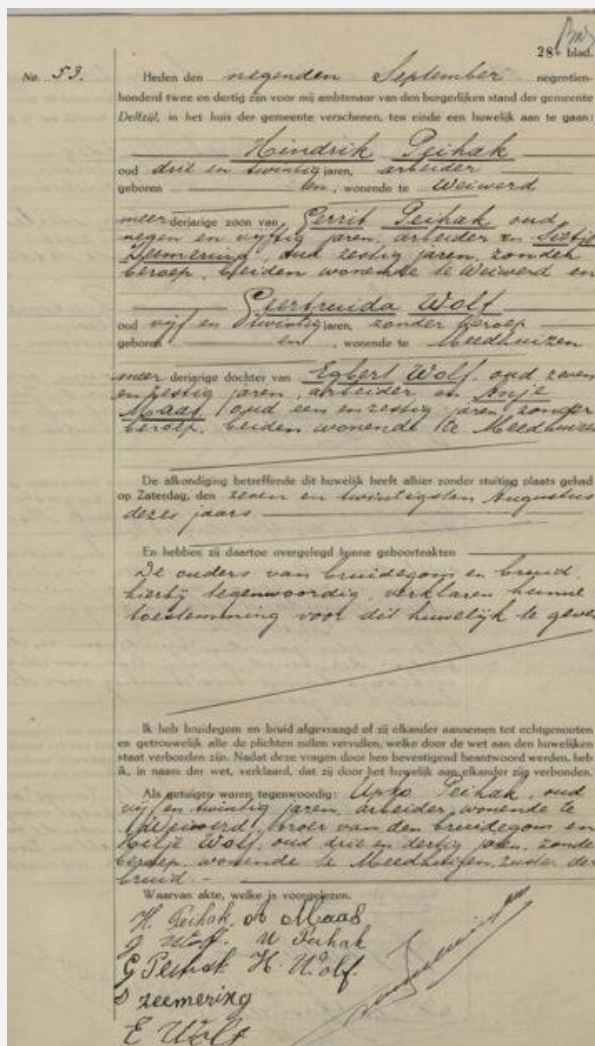 28e blad.
No. 53.
Heden den negenden September negentien-
honderd twee en dertig zijn voor mij ambtenaar van den burgerlijken stand der gemeente
Delfzijl, in het huis der gemeente verschenen, ten einde een huwelijk aan te gaan:
Hindrik Peihak
oud drie en twintig jaren, arbeider
geboren en, wonende te Weiwerd
meerderjarige zoon van Gerrit Peihak oud
negen en vijftig jaren, arbeider en Sietje
Zeemering, oud zestig jaren, zonder
beroep, beiden wonende te Weiwerd en
Geertruida Wolf
oud vijf en twintig jaren, zonder beroep
geboren en, wonende te Meedhuizen
meerderjarige dochter van Egbert Wolf, oud zeven
en zestig jaren, arbeider en Anje
Maas, oud een en zestig jaren, zonder
beroep, beiden wonende te Meedhuizen
De afkondiging betreffende dit huwelijk heeft alhier zonder stuiting plaats gehad
op Zaterdag, den zeven en twintigsten Augustus
dezes jaars
En hebben zij daartoe overgelegd hunne geboorteakten
De ouders van bruidegom en bruid,
hierbij tegenwoordig, verklaren hunne
toestemming voor dit huwelijk te geven
Ik heb bruidegom en bruid afgevraagd of zij elkander aannemen tot echtgenooten
en getrouwelijk alle de plichten zullen vervullen, welke door de wet aan den huwelijken
staat verbonden zijn. Nadat deze vragen door hen bevestigend beantwoord werden, heb
ik, in naam der wet, verklaard, dat zij door het huwelijk aan elkander zijn verbonden.
Als getuigen waren tegenwoordig: Upko Peihak, oud
vijf en twintig jaren, arbeider, wonende te
Weiwerd, broer van den bruidegom en
Wolf, oud drie en dertig jaren, zonder
beroep, wonende te Meedhuizen, zuster der
bruid.
Waarvan akte, welke is voorgelezen.
H. Peihak A Maas
g Wolf. U Peihak
G Peihak H. Wolf.
S zeemering
E Wolf